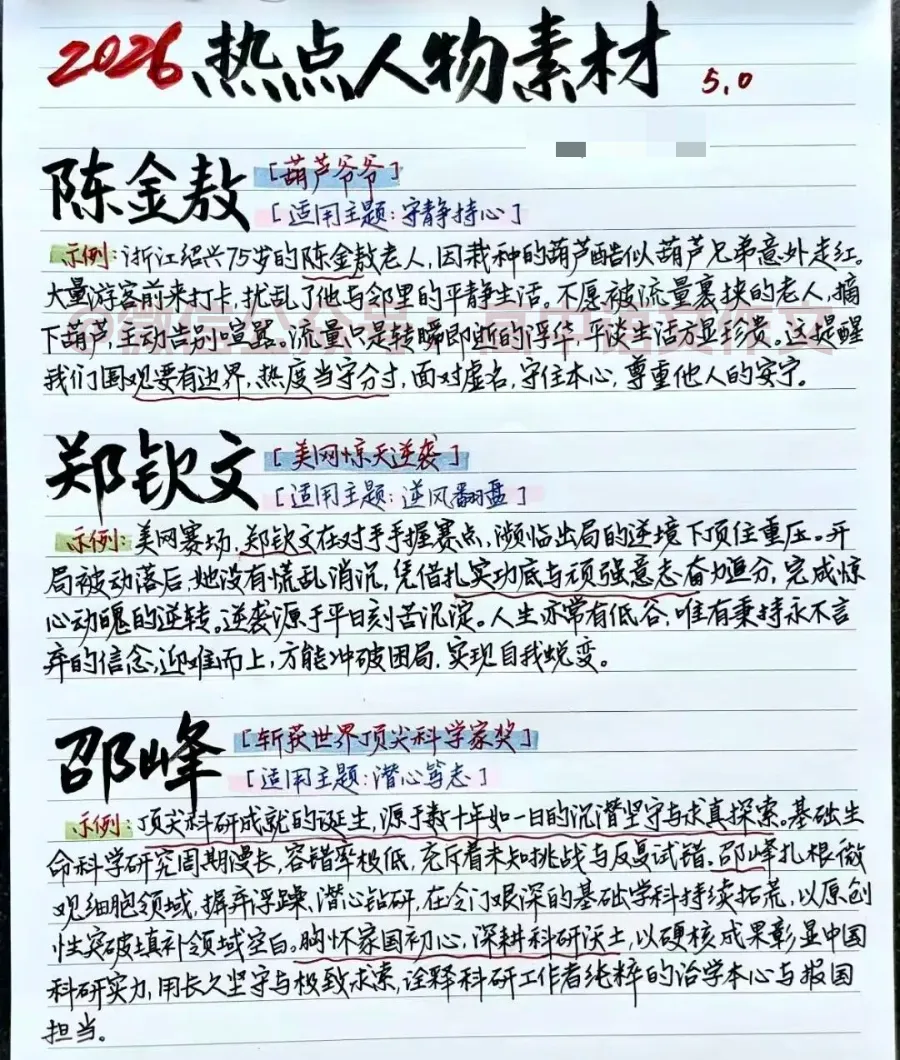 2026热点人物素材 5.0
陈金敖 [葫芦爷爷]
[适用主题:守静持心]
示例:浙江绍兴75岁的陈金敖老人,因栽种的葫芦酷似葫芦兄弟意外走红。
大量游客前来打卡,扰乱了他与邻里的平静生活。不愿被流量裹挟的老人,摘
下葫芦,主动告别喧嚣。流量只是转瞬即逝的浮华,平淡生活方显珍贵。这提醒
我们围观要有边界,热度当守分寸,面对虚名,守住本心,尊重他人的安宁。
郑钦文 [美网惊天逆袭]
[适用主题:逆风翻盘]
示例:美网赛场,郑钦文在对手手握赛点,濒临出局的逆境下顶住重压。开
局被动落后,她没有慌乱消沉,凭借扎实功底与顽强意志奋力追分,完成惊
心动魄的逆转。逆袭源于平日刻苦沉淀。人生亦常有低谷,唯有秉持永不言
弃的信念,迎难而上,方能冲破困局,实现自我蜕变。
邵峰 [斩获世界顶尖科学家奖]
[适用主题:潜心笃志]
示例:顶尖科研成就的诞生,源于数十年如一日的沉潜坚守与求真探索。基础生
命科学研究周期漫长,容错率极低,充斥着未知挑战与反复试错。邵峰扎根微
观细胞领域,摒弃浮躁、潜心钻研,在冷门艰深的基础学科持续拓荒,以原创
性突破填补领域空白。胸怀家国初心,深耕科研沃土,以硬核成果彰显中国
科研实力,用长久坚守与极致求索,诠释科研工作者纯粹的治学本心与报国
担当。